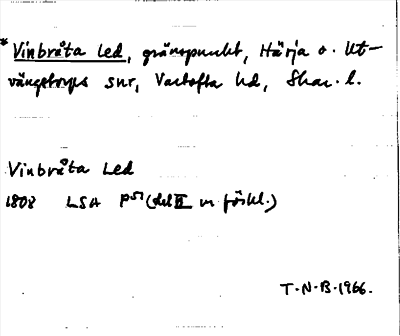 * Vinbråta Led, gränspunkt, Härja o. Ut-
vängstorps snr, Vartofta hd, Skar. l.
Vinbråta Led
1808 LSA P51 (del II m förkl.)
T.N.B. 1966.